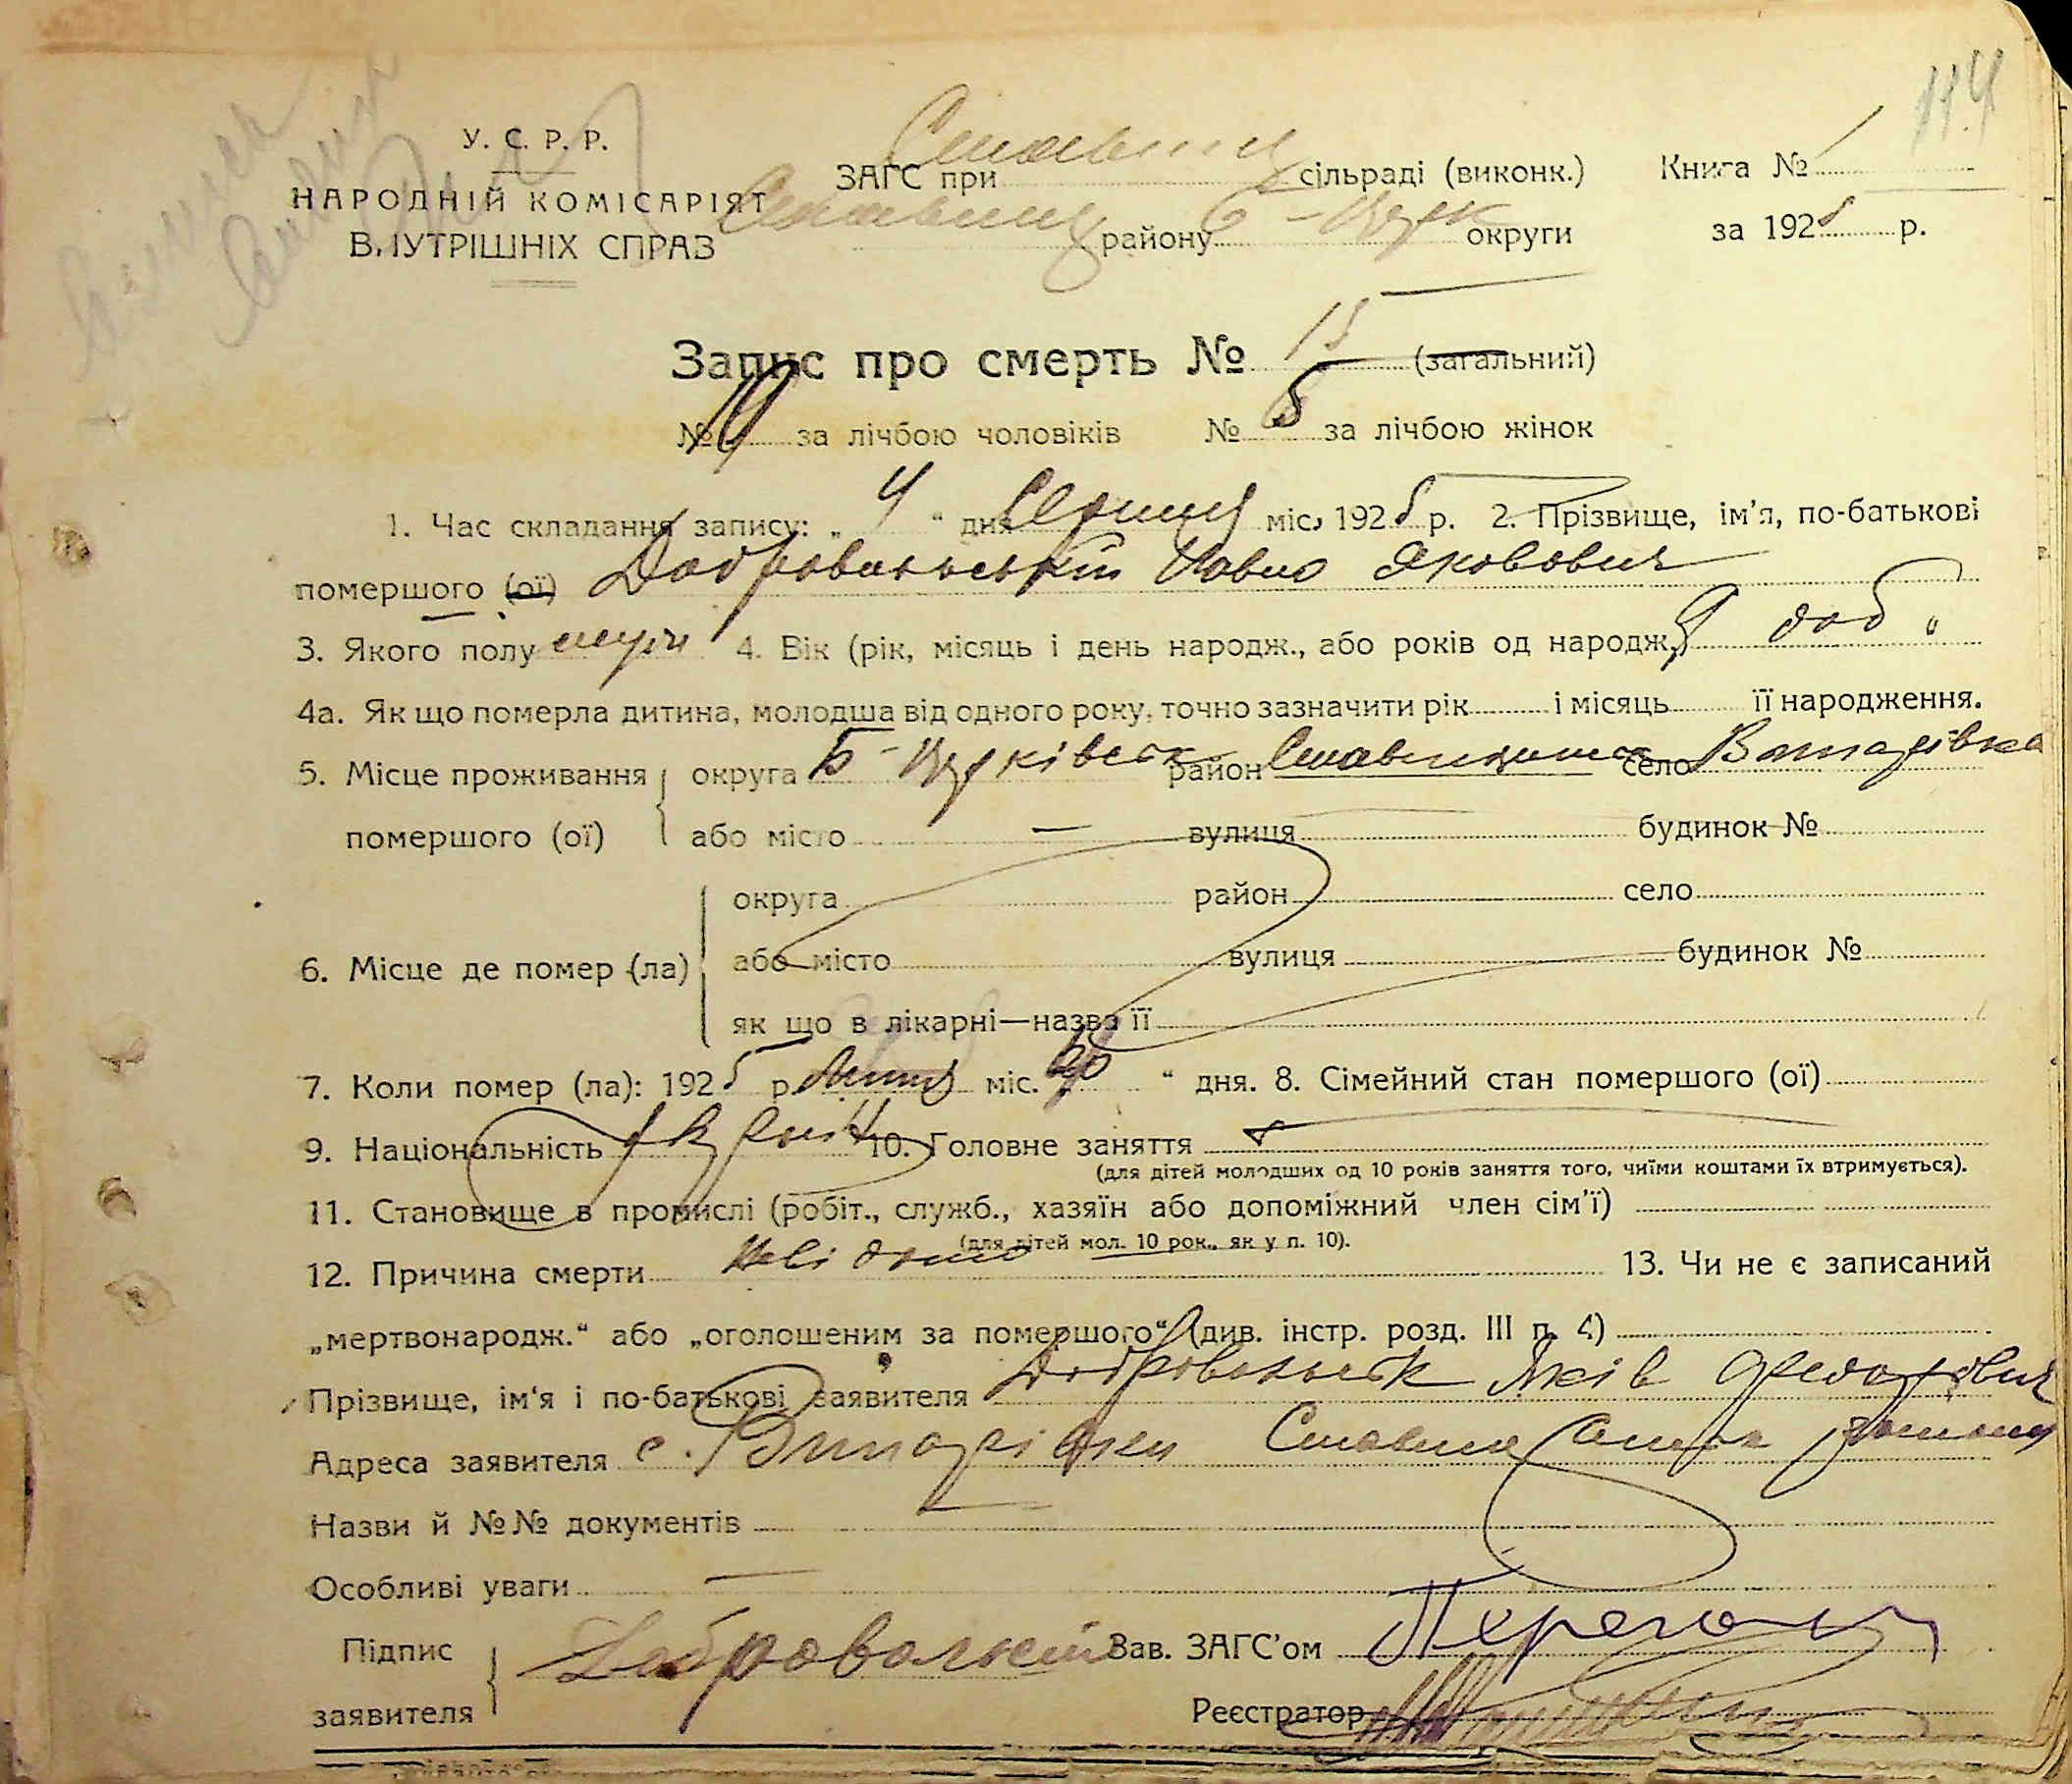 114
У. С. Р. Р.
НАРОДНІЙ КОМІСАРІЯТ
ВНУТРІШНІХ СПРАВ
ЗАГС при сільраді (виконк.)
району Б-Церк округи
Книга № 1
за 1925 р.
Запис про смерть № 15 (загальний)
№ за лічбою чоловіків № за лічбою жінок
1. Час складання запису: „ 4 “ дня Серпня міс. 1925 р. 2. Прізвище, ім'я, по-батькові
помершого (ої) Добровольський Павло Яковович
3. Якого полу муж 4. Вік (рік, місяць і день народж., або років од народж.) доб
4а. Як що померла дитина, молодша від одного року, точно зазначити рік і місяць її народження.
5. Місце проживання помершого (ої) округа Б-Церківськ район Ставищанськ село Винарівка
або місто — вулиця будинок №
6. Місце де помер (ла) округа район село
або місто вулиця будинок №
як що в лікарні—назва її
7. Коли помер (ла): 1925 р. Липня міс. “ дня. 8. Сімейний стан помершого (ої)
9. Національність 10. Головне заняття
(для дітей молодших од 10 років заняття того, чиїми коштами їх втримується).
11. Становище в промислі (робіт., служб., хазяїн або допоміжний член сім'ї)
(для дітей мол. 10 рок., як у п. 10).
12. Причина смерти Невідомо 13. Чи не є записаний
„мертвонародж.“ або „оголошеним за помершого“ (див. інстр. розд. III п. 4)
Прізвище, ім'я і по-батькові заявителя Добровольськ Яків Федорович
Адреса заявителя с. Винарівки
Назви й №№ документів
Особливі уваги —
Підпис заявителя Добровольский Вав. ЗАГС'ом
Реєстратор